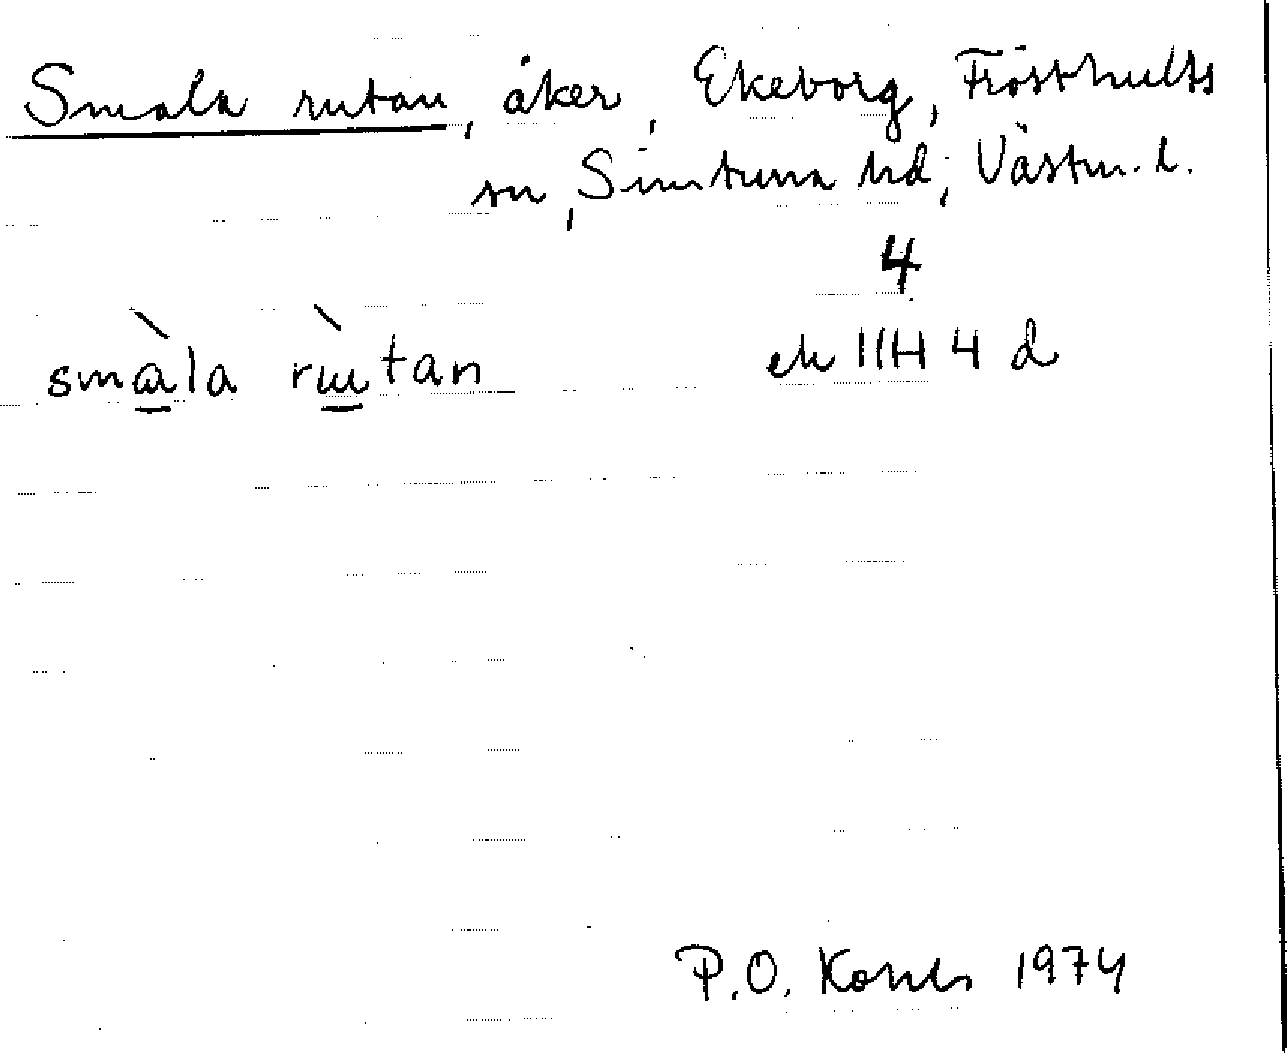 Smala rutan, åker, Ekeborg, Frösthults
sn, Simtuna hd, Västm. l.
4
smàla rùtan ek 11H 4 d
P.O. 1974